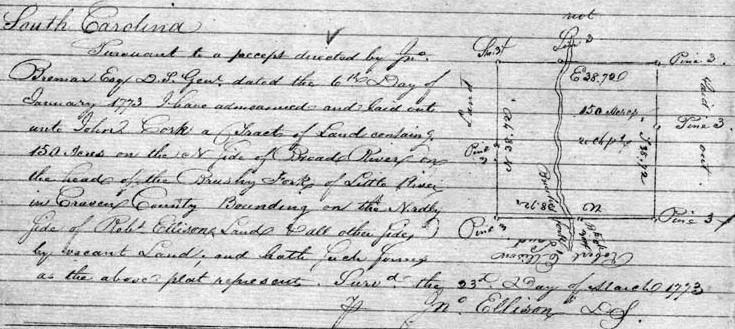 South Carolina
Pursuant to a precept directed by Jno.
Bremar Esqr D. S. Genl. dated the 6th Day of
January 1773 I have admeasured and laid out
unto John Cork a Tract of Land containg
150 Acres on the N side of Broad River on
the head of the Brushy Fork of Little River
in Craven County Bounding on the Nrdly
side of Robt Ellisons Land & all other sides
by vacant Land and hath such form
as the above plat represents. Survd. the 23d. Day of March 1773
Jno Ellison D. S.
not
Pine 3.
E 38,72
Land
laid out.
150 Acres
Pine 3.
N 38,72
S 38,72
Pine 3
Pine 3
Pine 3
Robert
Ellison
Land